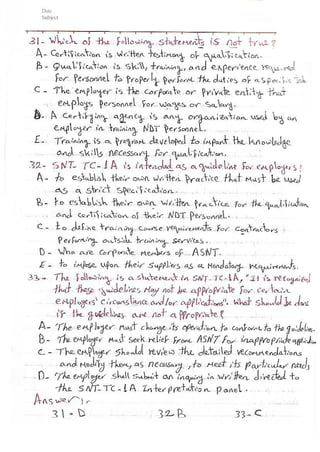 Date
Subject
31- Which of the following statements is not true?
A- Certification is written testimony of qualification.
B- Qualification is skill, training, and experience required
for Personnel to Properly Perform the duties of a specific Job
C- The employer is the corporate or Private entity that
employs personnel for wages or salary.
D. A Certifying agency is any organization used by an
employer in training NDT Personnel.
E- Training is a Program developed to impart the knowledge
and skills necessary for qualification.
32- SNT-TC-1A is intended as a guideline for employers!
A- to establish their own written Practice that must be used
as a strict specification.
B- to establish their own written practice for the qualification
and certification of their NDT Personnel.
C- to define training course requirements for contractors
Performing outside training services.
D- Who are Corporate members of ASNT.
E- to impose upon their suppliers as a mandatory requirements.
33- The following is a statement in SNT-TC-1A, "It is recognized
that these guidelines may not be appropriate for certain
employers' circumstance and/or applications". What should be done
if the guidelines are not appropriate?
A- The employer must change its operation to conform to the guideline.
B- The employer must seek relief from ASNT for inappropriate application
C- The employer should review the detailed recommendations
and modify them, as necessary, to meet its particular needs
D- The employer shall submit an inquiry in written directed to
the SNT-TC-1A Interpretation panel.
Answer:
31-D 32B 33-C